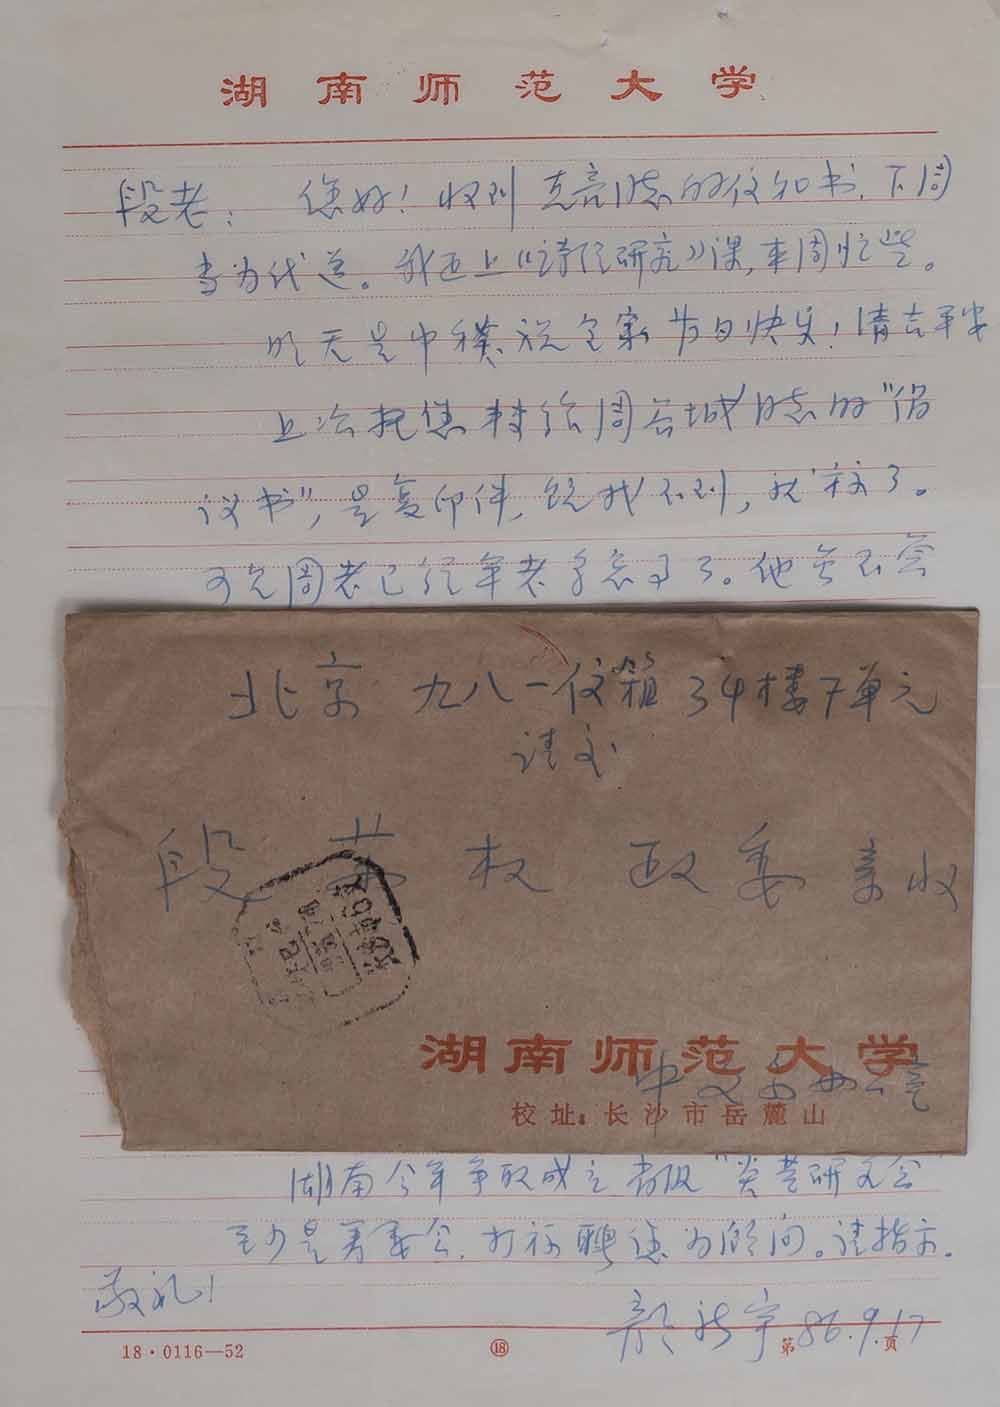 湖南师范大学
段老：您好！收到克亮同志的信和书，下周
当为代送。我还上《诗经研究》课，本周忙些。
昨天是中秋，祝全家节日快乐！清吉平安
上次托您转给周谷城同志的“倡
议书”，是复印件，既找不到，就算了。
可见周老已经年老多忘事了。他会不会
北京 九八一信箱34楼7单元
请交
段苏权 政委 亲收
湖南师范大学
中文系
校址：长沙市岳麓山
湖南今年争取成立省级“炎黄研究会
至少是筹委会，打算聘您为顾问。请指示。
敬礼！
颜新宇 86.9.17
18·0116—52
⑱
第 页